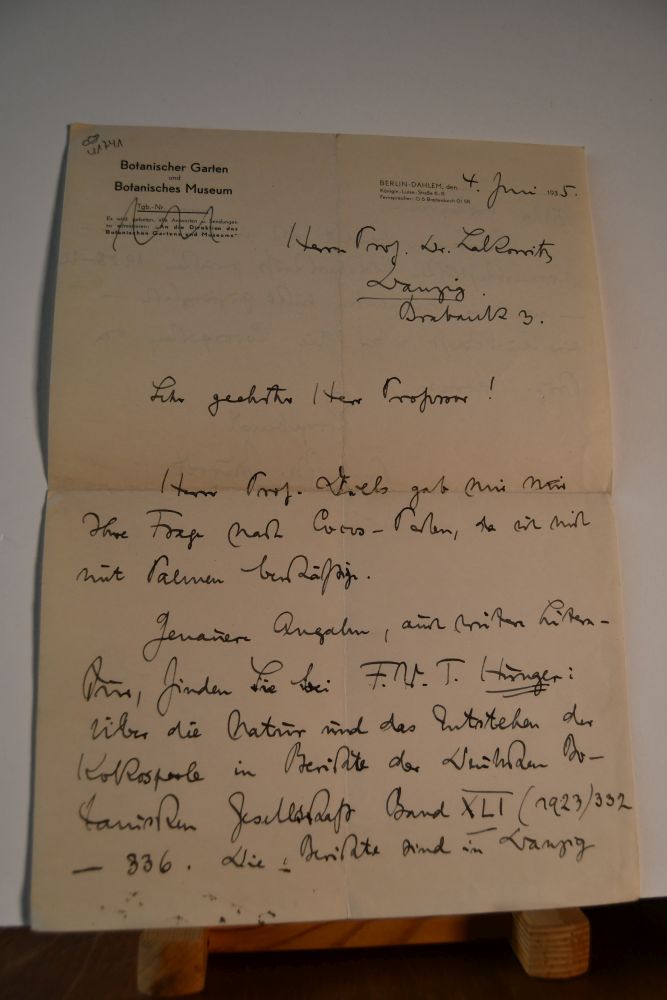 41741
Botanischer Garten
und
Botanisches Museum
Tgb.-Nr.
Es wird gebeten, alle Antworten u. Sendungen
zu adressieren: „An die Direktion des
Botanischen Gartens und Museums"
BERLIN-DAHLEM, den 4. Juni 1935.
Königin-Luise-Straße 6-8
Fernsprecher: G 6 Breitenbach
Herrn Prof. Dr. Lakowitz
Danzig.
Brabank 3.
Sehr geehrter Herr Professor!
Herr Prof. Diels gab mir
Ihre Frage nach Cocos-Perlen, da ich mich
mit Palmen beschäftige.
Genauere Angaben, auch weitere Litera-
tur, finden Sie bei F. W. T. Hunger:
Über die Natur und das Entstehen der
Kokosperle in Berichte der Deutschen Bo-
tanischen Gesellschaft Band XLI (1923) 332
— 336. Die Berichte sind in Danzig